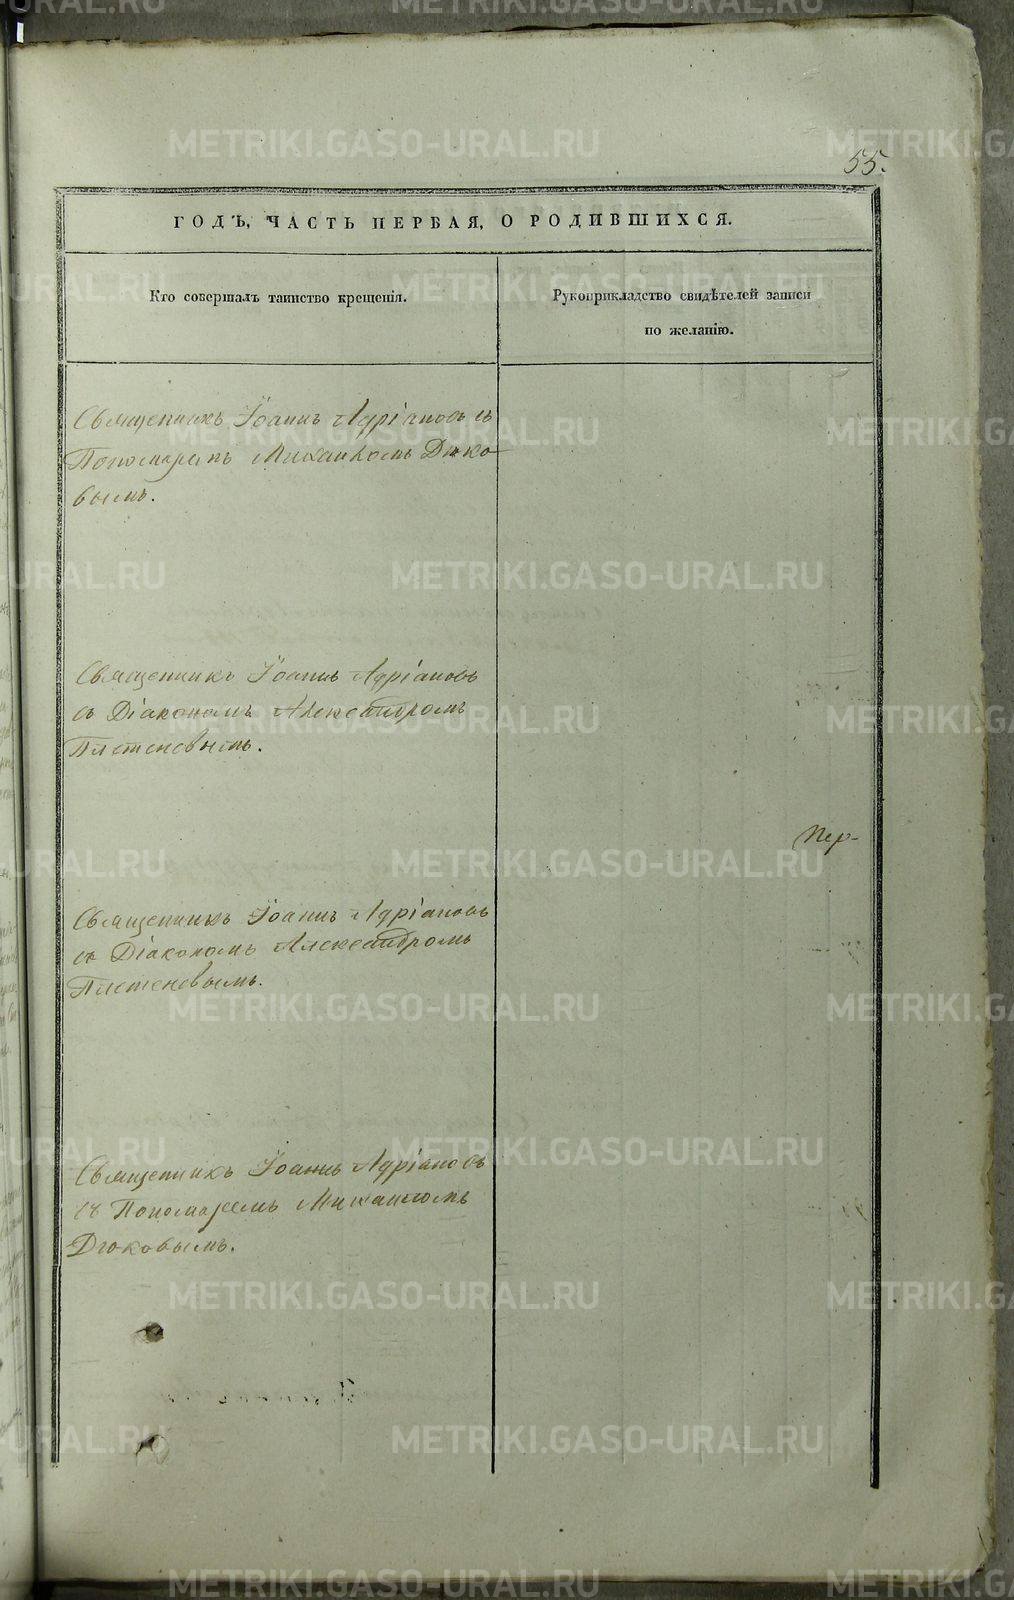 55.
ГОДЪ, ЧАСТЬ ПЕРВАЯ, О РОДИВШИХСЯ.
Кто совершалъ таинство крещенія.
Рукоприкладство свидѣтелей записи
по желанію.
Священникъ Іоаннъ Адріановъ съ
Пономаремъ Михаиломъ Дюко-
вымъ.
Священникъ Іоаннъ Адріановъ
съ Діакономъ Александромъ
Плетеневымъ.
Пер-
Священникъ Іоаннъ Адріановъ
съ Діакономъ Александромъ
Плетеневымъ.
Священникъ Іоаннъ Адріановъ
съ Пономаремъ Михаиломъ
Дюковымъ.
METRIKI.GASO-URAL.RU